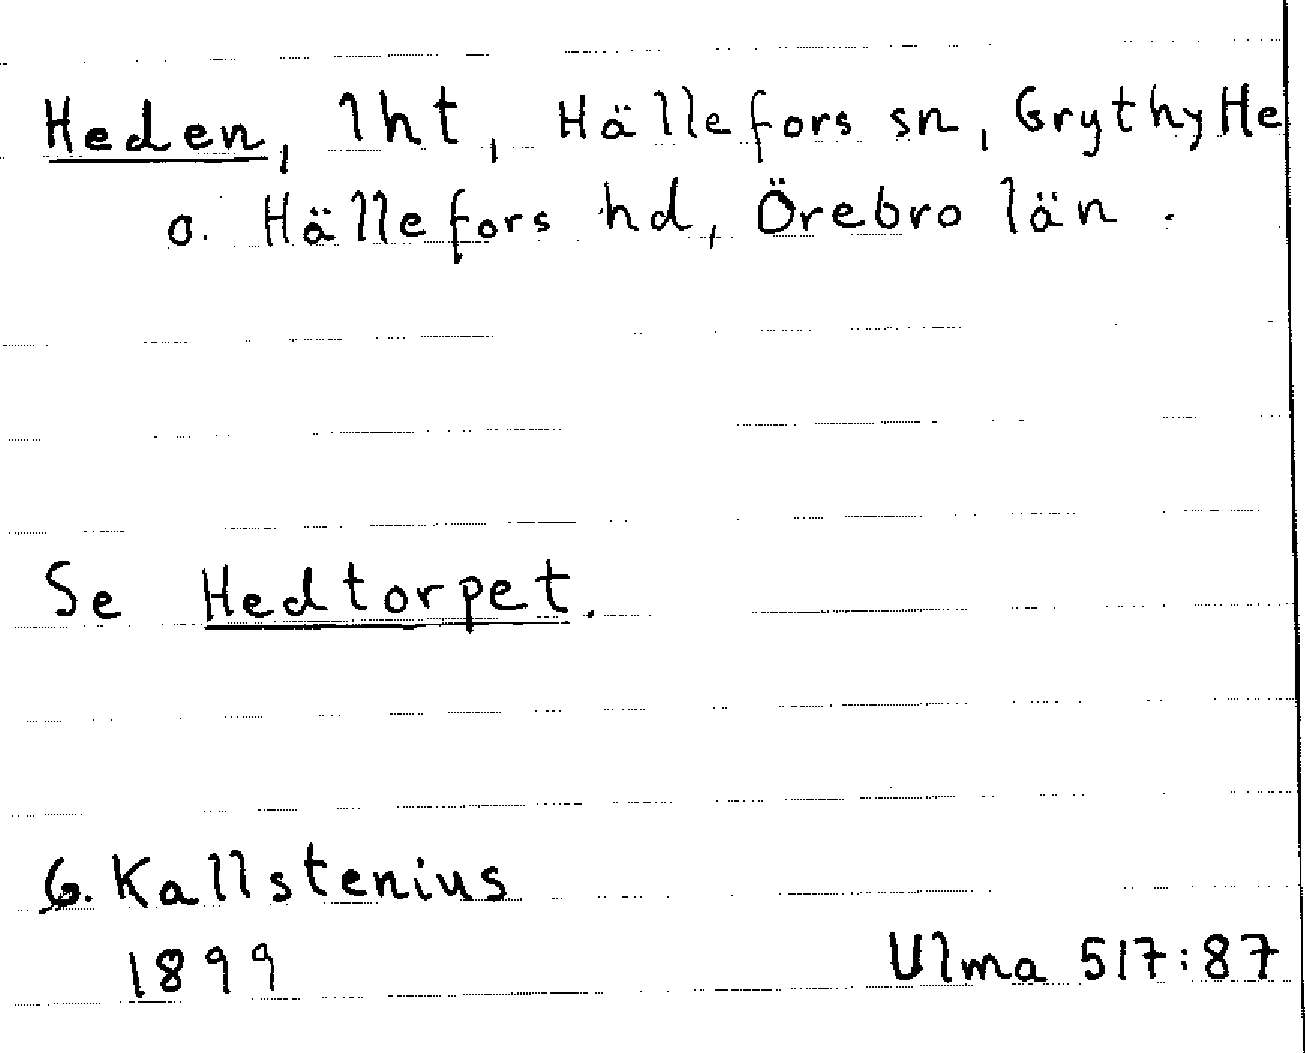 Heden, lht, Hällefors sn, Grythytte
o. Hällefors hd, Örebro län.
Se Hedtorpet.
G. Kallstenius
1899
Ulma 517:87